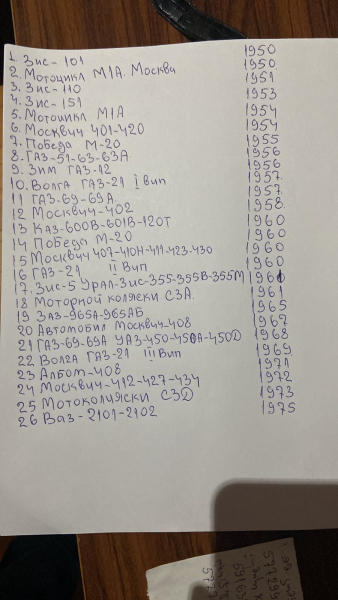 1. Зис-101 1950
2. Мотоцикл М1А. Москва 1950
3. Зис-110 1951
4. Зис-151 1953
5. Мотоцикл М1А 1954
6. Москвич 401-420 1954
7. Победа М-20 1955
8. ГАЗ-51-63-63А 1956
9. Зим ГАЗ-12 1956
10. Волга ГАЗ-21 I вип 1957
11 ГАЗ-69-69А 1957
12 Москвич-402 1958
13 Каз-600В-601В-120Т 1960
14 Победа М-20 1960
15 Москвич 407-410Н-411-423-430 1960
16 ГАЗ-21 II Вип 1960
17. Зис-5 Урал-Зис-355-355В-355М 1961
18 Моторной коляски СЗА. 1961
19 ЗАЗ-965А-965АБ 1965
20 Автомобил Москвич-408 1967
21 ГАЗ-69-69А УАЗ-450-450А-450Д 1968
22 Волга ГАЗ-21 III Вип 1969
23 Албом-408 1971
24 Москвич-412-427-434 1972
25 Мотоколяски СЗД 1973
26 Ваз-2101-2102 1975